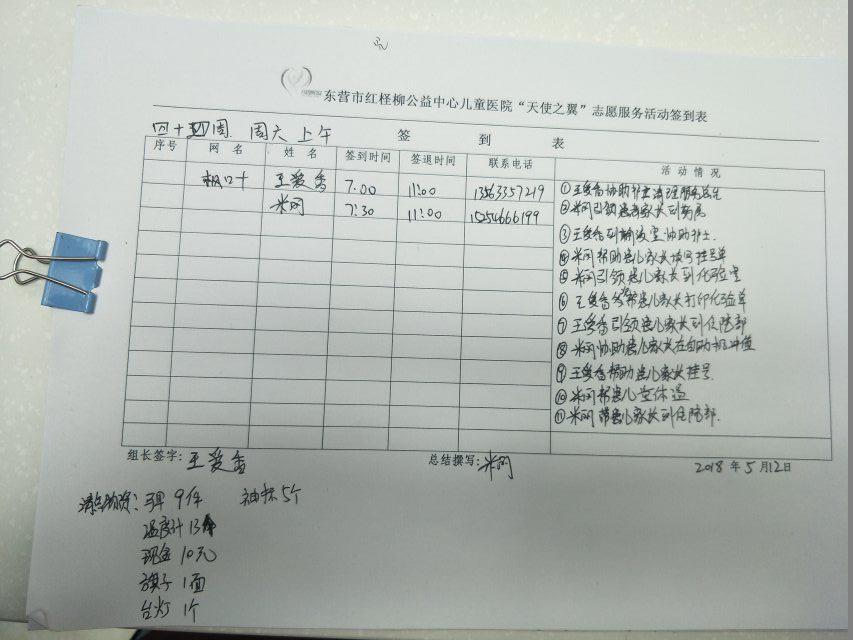 东营市红柽柳公益中心儿童医院“天使之翼”志愿服务活动签到表
四十四周 周六 上午 签 到 表
序号 网 名 姓 名 签到时间 签退时间 联系电话 活 动 情 况
枫叶 王爱香 7:00 11:00 13563357219
米网 7:30 11:00 15254666199
①王爱香协助护士清理服务总台
②米网引领患者家长到药房
③王爱香到输液室协助护士.
④米网帮助患儿家长填写挂号单
⑤米网引领患儿家长到化验室
⑥王爱香帮患儿家长打印化验单
⑦王爱香引领患儿家长到住院部
⑧米网协助患儿家长在自动机冲值
⑨王爱香帮助患儿家长挂号.
⑩米网帮患儿量体温
⑪米网带患儿家长到住院部.
组长签字：王爱香 总结撰写：米网
2018 年 5 月 12 日
清点物资：马甲 9件 袖标 5个
温度计 13个
现金 10元
旗子 1面
台灯 1个